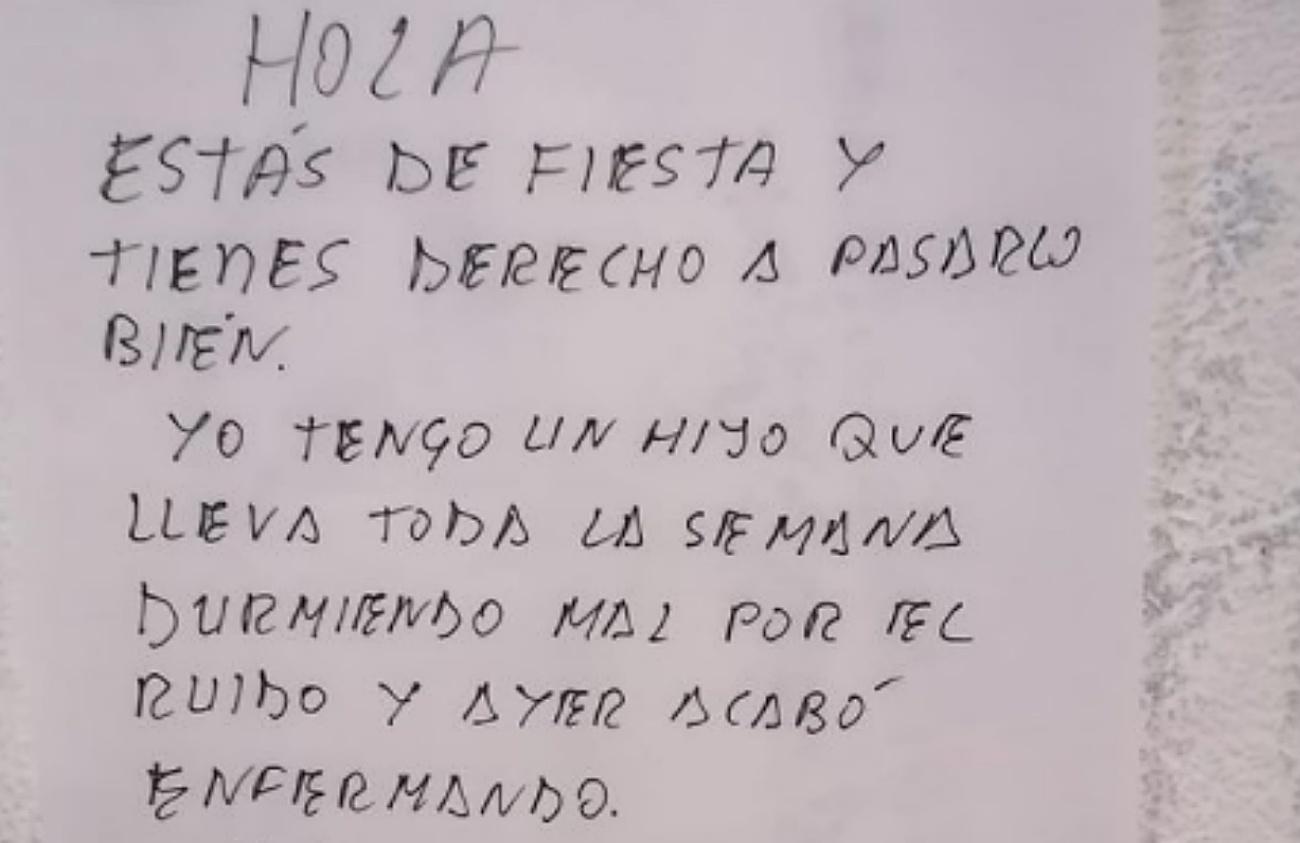 HOLA
ESTÁS DE FIESTA Y
TIENES DERECHO A PASARLO
BIÉN.
YO TENGO UN HIJO QUE
LLEVA TODA LA SEMANA
DURMIENDO MAL POR EL
RUIDO Y AYER ACABÓ
ENFERMANDO.